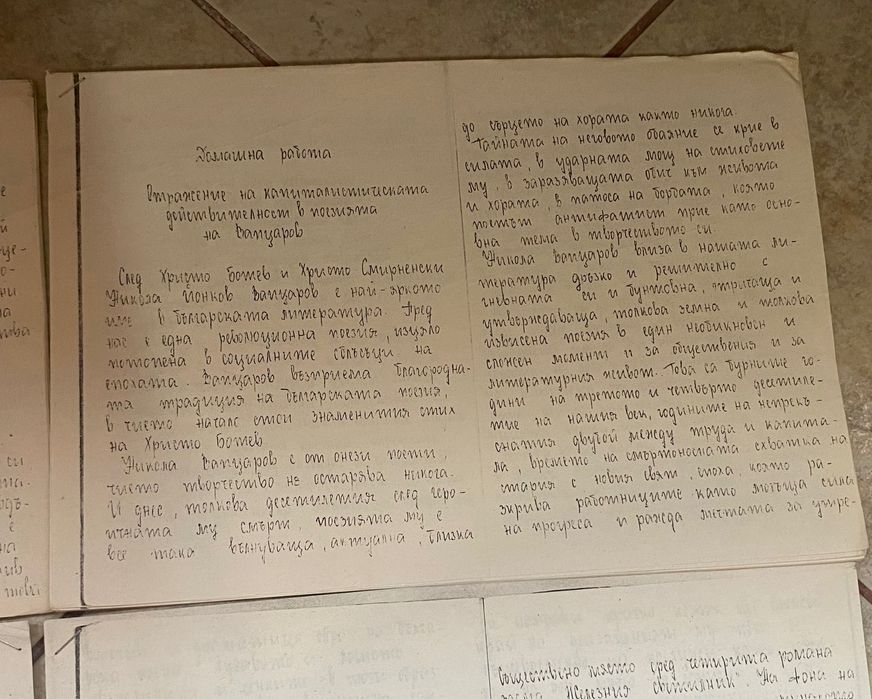 Домашна работа
Отражение на капиталистическата
действителност в поезията
на Вапцаров
След Христо Ботев и Христо Смирненски
Никола Йонков Вапцаров е най-яркото
име в българската литература. Пред
нас е една революционна поезия, изцяло
потопена в социалните сблъсъци на
епохата. Вапцаров възприема благородна-
та традиция на българската поезия,
в чието начало стои знаменития стих
на Христо Ботев
Никола Вапцаров е от онези поети,
чието творчество не остарява никога.
И днес, толкова десетилетия след геро-
ичната му смърт, поезията му е
все така вълнуваща, актуална, близка
до сърцето на хората както никога.
Тайната на неговото обаяние се крие в
силата, в ударната мощ на стиховете
му, в заразяващата обич към живота
и хората, в патоса на борбата, която
поетът антифашист прие като осно-
вна тема в творчеството си.
Никола Вапцаров влиза в нашата ли-
тература дръзко и решително с
гневната си и бунтовна, отричаща и
утвърждаваща, толкова земна и толкова
извисена поезия в един необикновен и
сложен момент и за обществения и за
литературния живот. Това са бурните го-
дини на третото и четвърто десетиле-
тие на нашия век, годините на непрекъ-
снатия двубой между труда и капита-
ла, времето на смъртоносната схватка на
стария с новия свят, епоха, която ра-
зкрива работниците като могъща сила
на прогреса и ражда мечтата за утре-
Съществено място сред четирите романа
заема "Железния светилник". На фона на